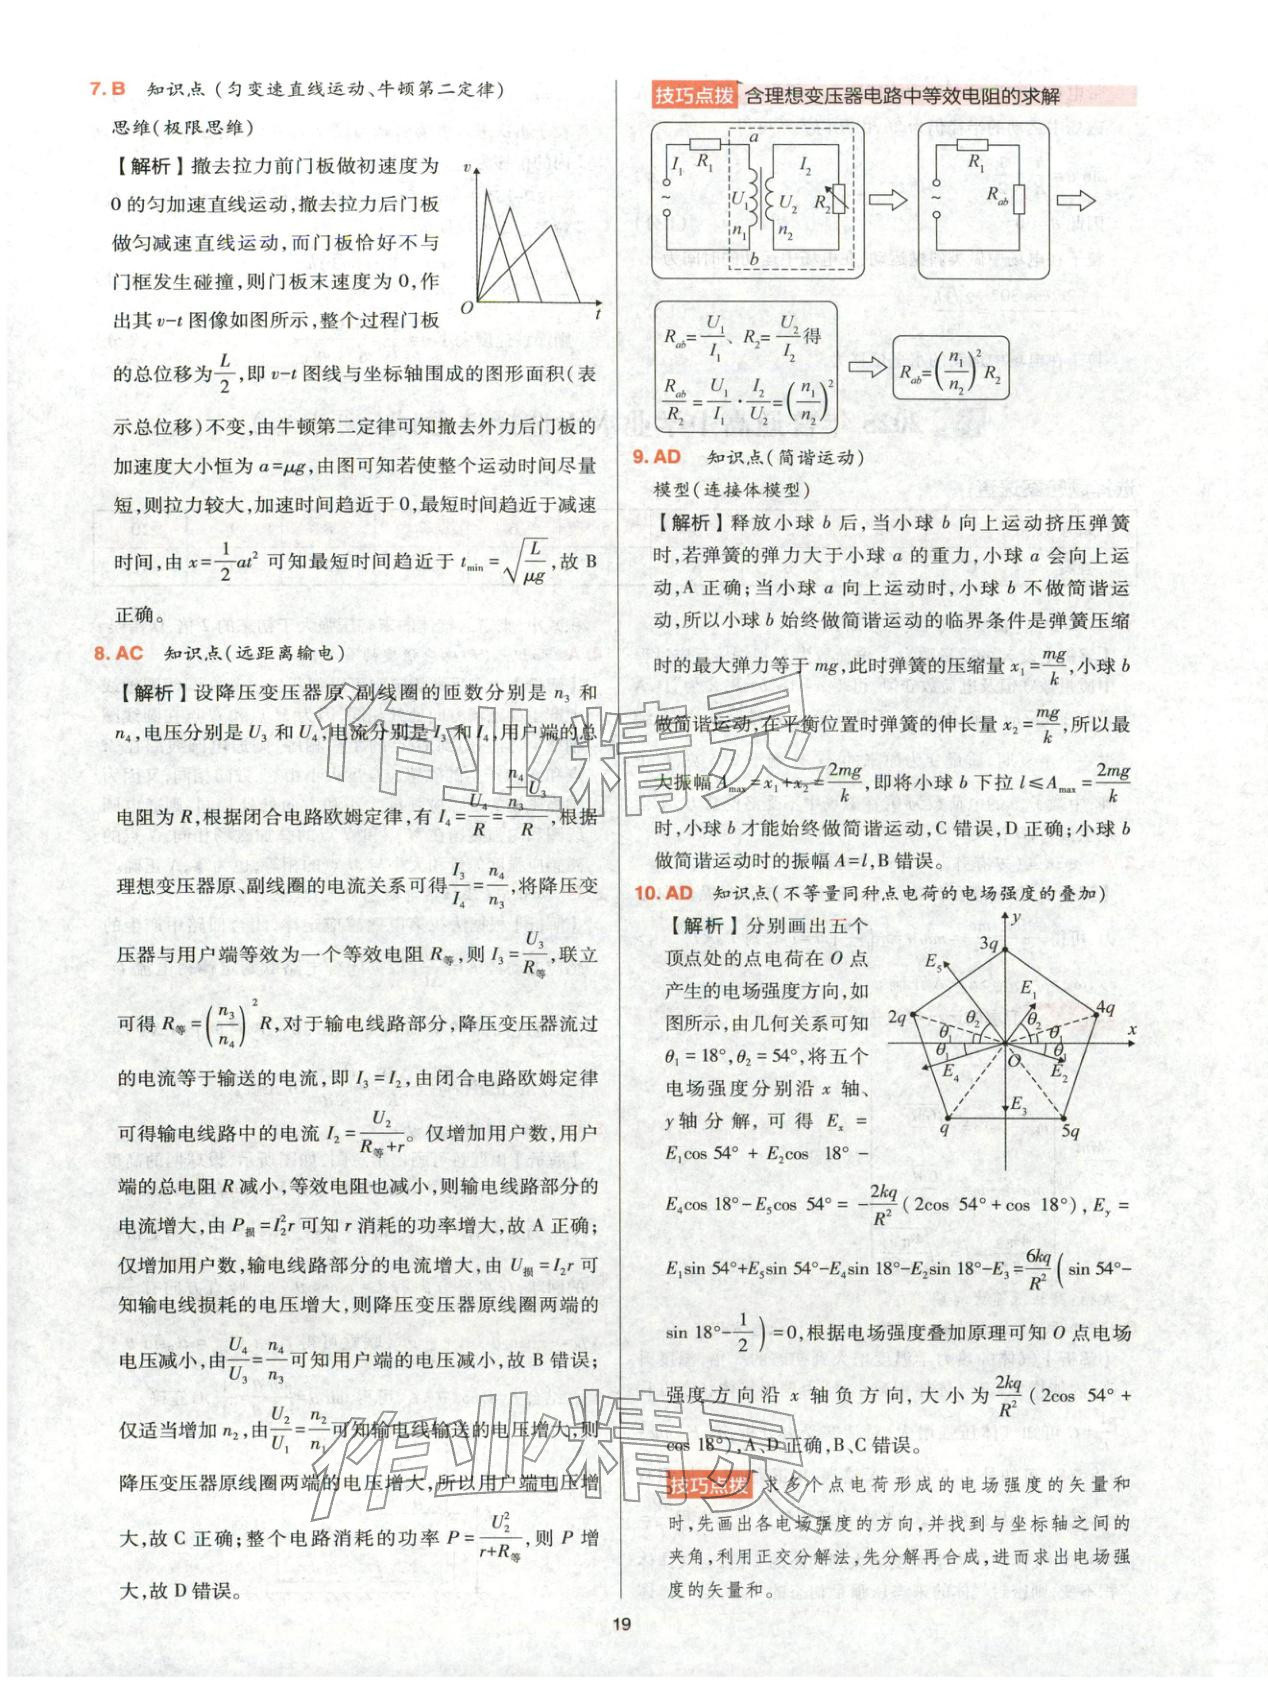 7. B 知识点(匀变速直线运动、牛顿第二定律)
思维(极限思维)
【解析】撤去拉力前门板做初速度为
0 的匀加速直线运动,撤去拉力后门板
做匀减速直线运动,而门板恰好不与
门框发生碰撞,则门板末速度为 0,作
出其 v-t 图像如图所示,整个过程门板
v
O
t
的总位移为 L/2,即 v-t 图线与坐标轴围成的图形面积(表
示总位移)不变,由牛顿第二定律可知撤去外力后门板的
加速度大小恒为 a=μg,由图可知若使整个运动时间尽量
短,则拉力较大,加速时间趋近于 0,最短时间趋近于减速
时间,由 x=1/2 at² 可知最短时间趋近于 t_min=√(L/μg),故 B
正确。
8. AC 知识点(远距离输电)
【解析】设降压变压器原、副线圈的匝数分别是 n₃ 和
n₄,电压分别是 U₃ 和 U₄,电流分别是 I₃ 和 I₄,用户端的总
电阻为 R,根据闭合电路欧姆定律,有 I₄=U₄/R=(n₄/n₃ U₃)/R,根据
理想变压器原、副线圈的电流关系可得 I₃/I₄=n₄/n₃,将降压变
压器与用户端等效为一个等效电阻 R等,则 I₃=U₃/R等,联立
可得 R等=(n₃/n₄)²R,对于输电线路部分,降压变压器流过
的电流等于输送的电流,即 I₃=I₂,由闭合电路欧姆定律
可得输电线路中的电流 I₂=U₂/(R等+r)。仅增加用户数,用户
端的总电阻 R 减小,等效电阻也减小,则输电线路部分的
电流增大,由 P损=I₂²r 可知 r 消耗的功率增大,故 A 正确;
仅增加用户数,输电线路部分的电流增大,由 U损=I₂r 可
知输电线损耗的电压增大,则降压变压器原线圈两端的
电压减小,由 U₄/U₃=n₄/n₃ 可知用户端的电压减小,故 B 错误;
仅适当增加 n₂,由 U₂/U₁=n₂/n₁ 可知输电线输送的电压增大,则
降压变压器原线圈两端的电压增大,所以用户端电压增
大,故 C 正确;整个电路消耗的功率 P=U₂²/(r+R等),则 P 增
大,故 D 错误。
技巧点拨 含理想变压器电路中等效电阻的求解
I₁ R₁ a I₂ U₁ U₂ R₂ n₁ n₂ b ~
R₁ R_ab ~
R_ab=U₁/I₁、R₂=U₂/I₂得
R_ab/R₂=U₁/I₁·I₂/U₂=(n₁/n₂)²
R_ab=(n₁/n₂)²R₂
9. AD 知识点(简谐运动)
模型(连接体模型)
【解析】释放小球 b 后,当小球 b 向上运动挤压弹簧
时,若弹簧的弹力大于小球 a 的重力,小球 a 会向上运
动,A 正确;当小球 a 向上运动时,小球 b 不做简谐运
动,所以小球 b 始终做简谐运动的临界条件是弹簧压缩
时的最大弹力等于 mg,此时弹簧的压缩量 x₁=mg/k,小球 b
做简谐运动,在平衡位置时弹簧的伸长量 x₂=mg/k,所以最
大振幅 A_max=x₁+x₂=2mg/k,即将小球 b 下拉 l≤A_max=2mg/k
时,小球 b 才能始终做简谐运动,C 错误,D 正确;小球 b
做简谐运动时的振幅 A=l,B 错误。
10. AD 知识点(不等量同种点电荷的电场强度的叠加)
【解析】分别画出五个
顶点处的点电荷在 O 点
产生的电场强度方向,如
图所示,由几何关系可知
θ₁=18°,θ₂=54°,将五个
电场强度分别沿 x 轴、
y 轴分解,可得 Eₓ=
E₁cos 54°+E₂cos 18°-
y
3q
E₅
E₁
2q
θ₂
θ₂
4q
x
θ₁
θ₁
θ₁
θ₁
E₄
O
E₂
E₃
q
5q
E₄cos 18°-E₅cos 54°=-2kq/R²(2cos 54°+cos 18°),E_y=
E₁sin 54°+E₅sin 54°-E₄sin 18°-E₂sin 18°-E₃=6kq/R²(sin 54°-
sin 18°-1/2)=0,根据电场强度叠加原理可知 O 点电场
强度方向沿 x 轴负方向,大小为 2kq/R²(2cos 54°+
cos 18°),A、D 正确,B、C 错误。
技巧点拨 求多个点电荷形成的电场强度的矢量和
时,先画出各电场强度的方向,并找到与坐标轴之间的
夹角,利用正交分解法,先分解再合成,进而求出电场强
度的矢量和。
作业精灵
作业精灵
19